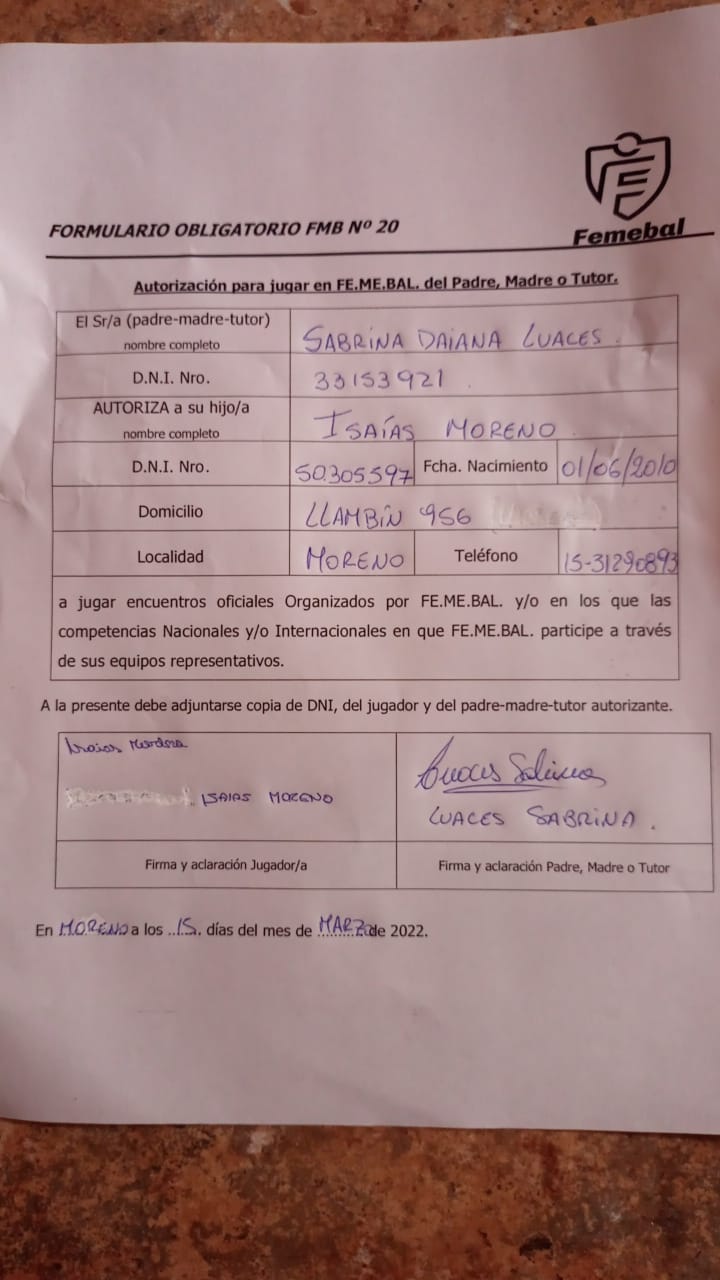 FORMULARIO OBLIGATORIO FMB Nº 20
Femebal
Autorización para jugar en FE.ME.BAL. del Padre, Madre o Tutor.
El Sr/a (padre-madre-tutor)
nombre completo
SABRINA DAIANA LUACES
D.N.I. Nro.
33153921
AUTORIZA a su hijo/a
nombre completo
ISAÍAS MORENO
D.N.I. Nro.
50.305597
Fcha. Nacimiento
01/06/2010
Domicilio
LLAMBÍN 956
Localidad
MORENO
Teléfono
15-31290893
a jugar encuentros oficiales Organizados por FE.ME.BAL. y/o en los que las
competencias Nacionales y/o Internacionales en que FE.ME.BAL. participe a través
de sus equipos representativos.
A la presente debe adjuntarse copia de DNI, del jugador y del padre-madre-tutor autorizante.
ISAIAS MORENO
LUACES SABRINA.
Firma y aclaración Jugador/a
Firma y aclaración Padre, Madre o Tutor
En MORENO a los ..15. días del mes de MARZO de 2022.